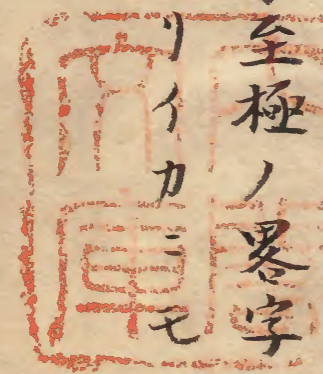 至極ノ畧字
リイカニモ